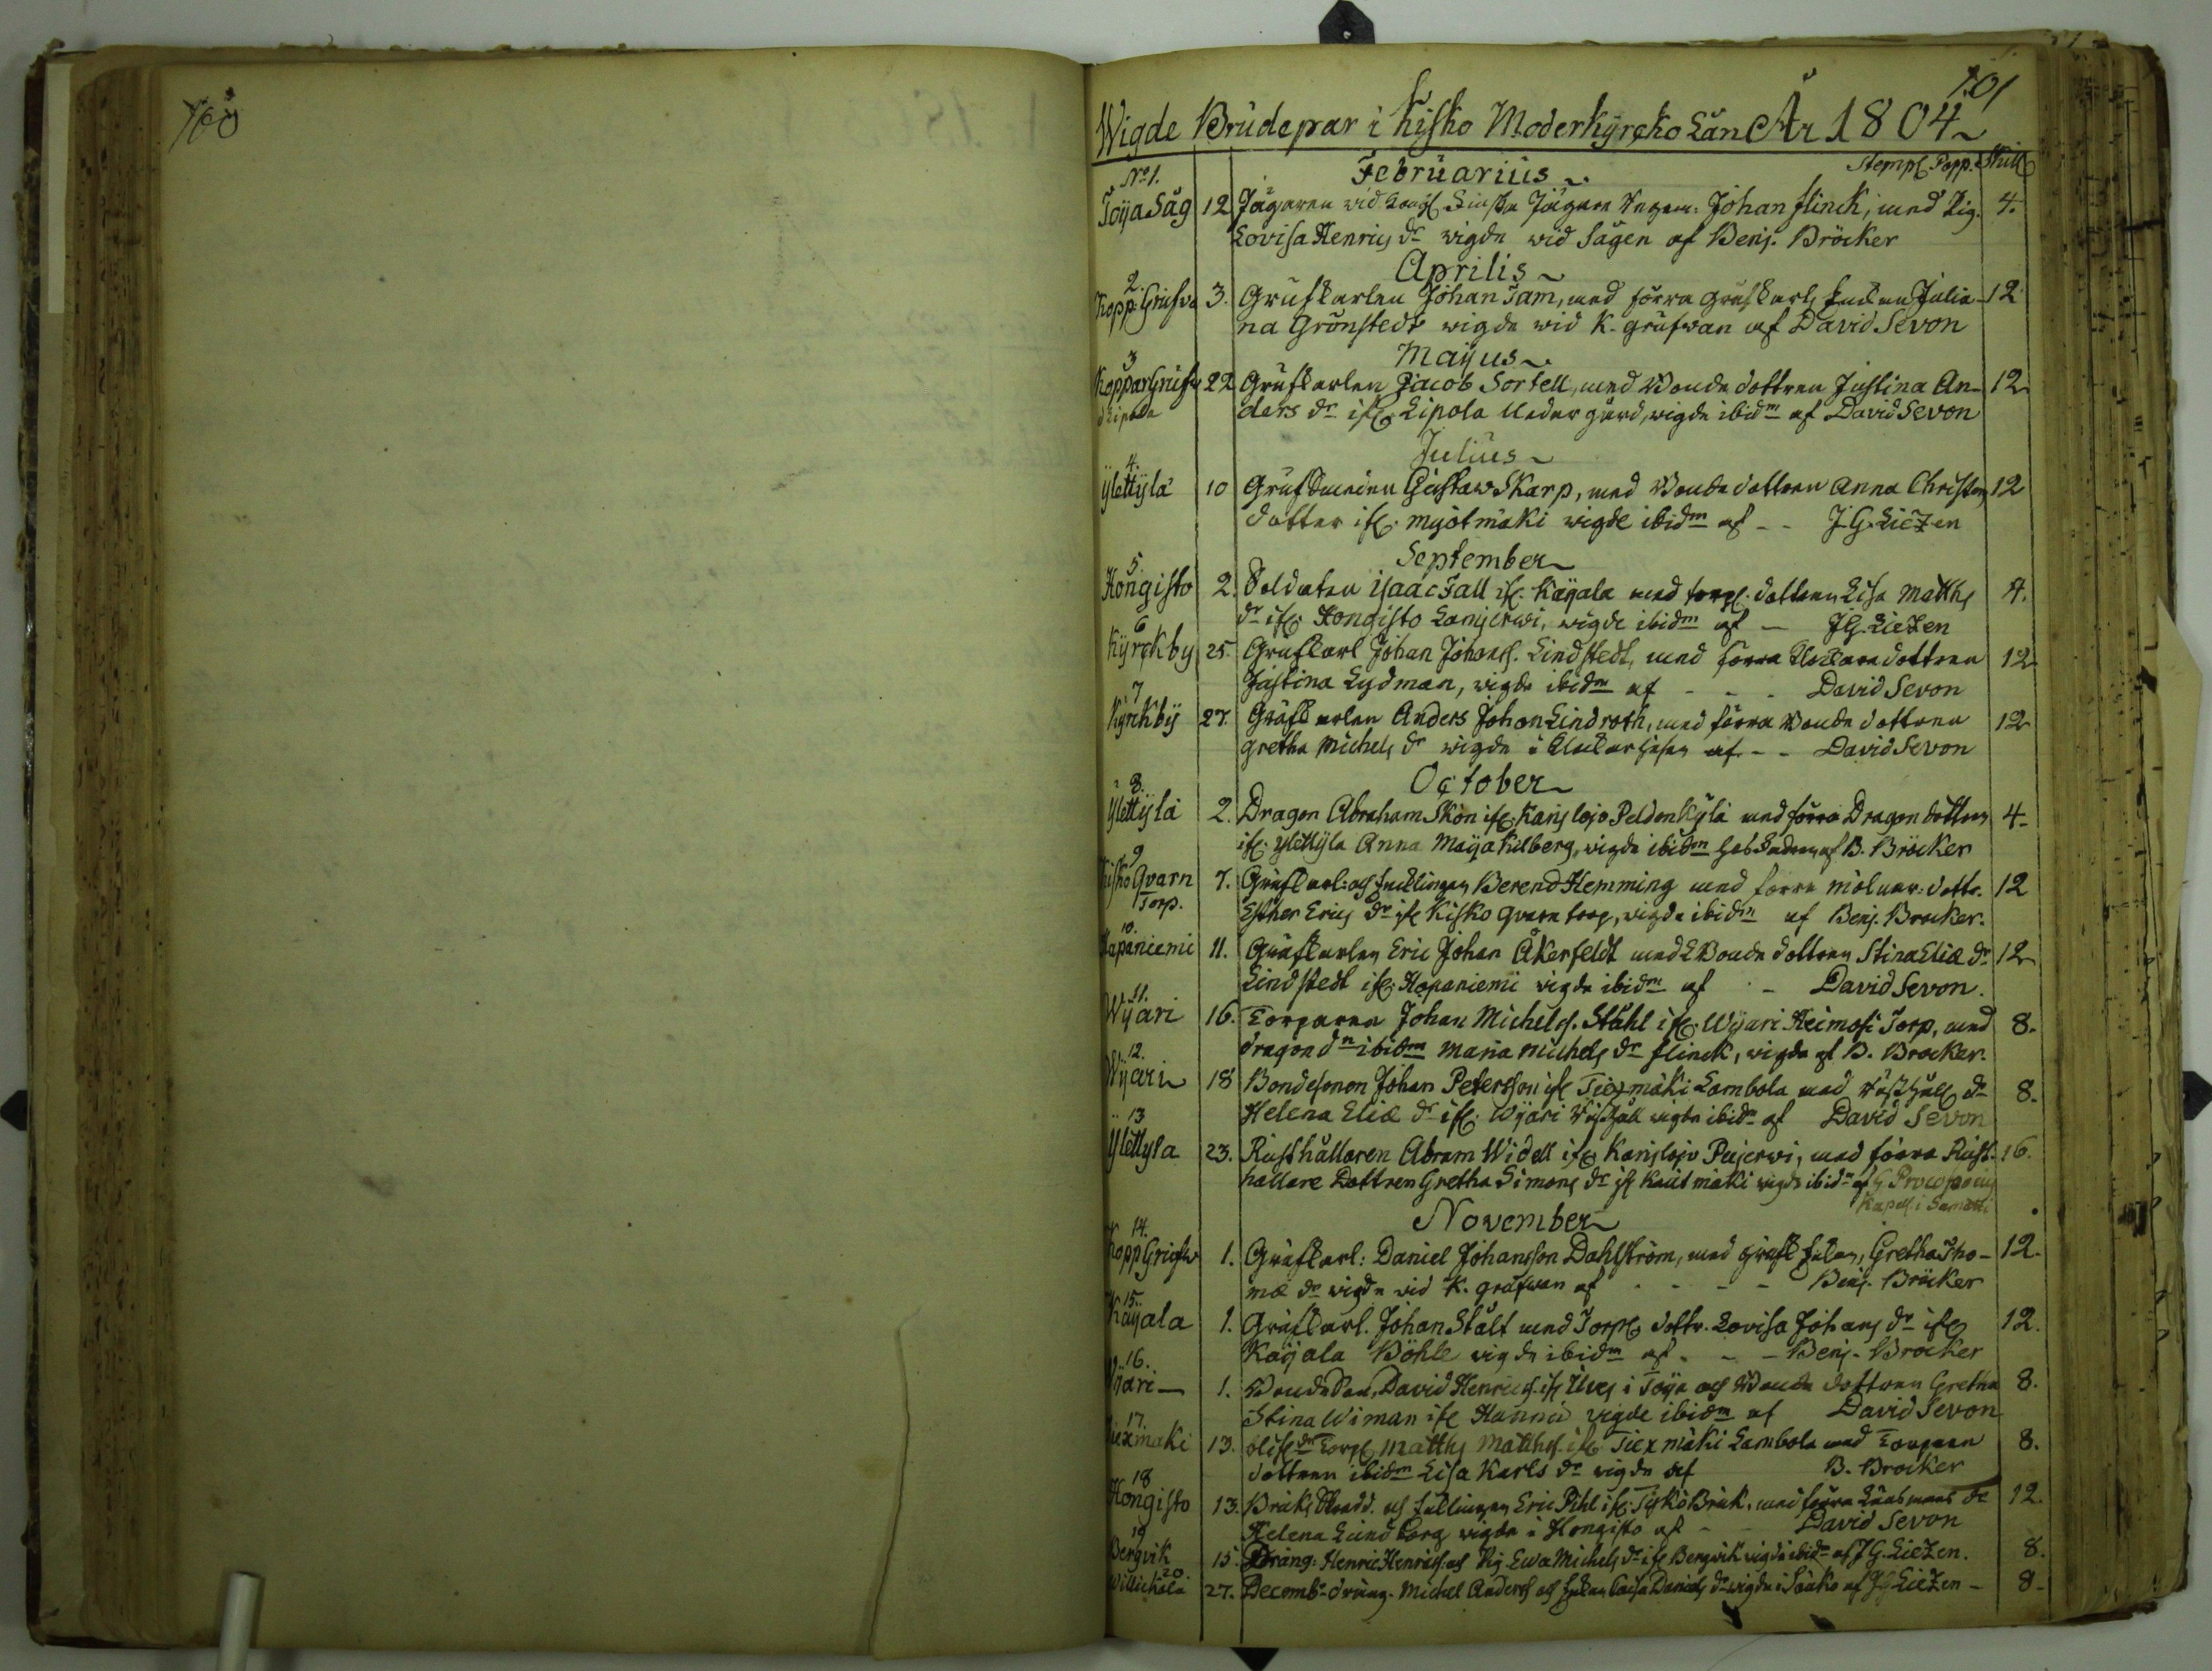 100
101
Wigde Brudepar i Kisko Moderkyrcko Län År 1804
Stempl. Papp. Skill
Februarius
No 1.
Toija Såg 12 Jägaren wid Kongl. Finska Jägare Regem: Johan Flinck, med Pig. 4.
Lovisa Henrics dr wigde wid Sågen af Benj. Bröcker
Aprilis
2.
Kopp: Grufva 3. Grufkarlen Johan Tam, med förra grufkarls Enkan Julia- 12
na Grönstedt wigde wid K. grufwan af David Sevon
Majus
3
Koppar Grufv 22 Grufkarlen Jacob Sortell, med Bonde dottren Justina An- 12
Lipola ders dr ifr. Lipola Neder gård, wigde ibidm af David Sevon
Julius
4.
Ylettylä 10 Gustaw Skarp, med Bonde dottren Anna Christers 12
dotter ifr. Myötmäki wigde ibidm af - - J. G. Liezen
September
5.
Kongisto 2. Soldaten Isaac Fall ifr. Kajala med torp. dottren Lisa Matths 4.
dr ifr. Hongisto Lamjerwi, wigde ibidm af - J G. Liezen
6
Kyrckby 25. Grufkarl Johan Johans. Lindstedt, med förra Klockare dottren 12
Justina Lydman, wigde ibidm af - - - David Sevon
7
Kyrckby 27. Grufkarlen Anders Johan Lindroth, med förra Bonde dottren 12
Gretha Michels dr wigde i af - - David Sevon
October
8.
Ylettylä 2. Dragon Abraham Skön ifr. Karjslojo Peldenkylä med förra Dragon dottren 4.
ifr. Ylettyla Anna Maja Kilberg, wigde ibidm af B. Bröcker
9
Kisko Qvarn 7. Grufkarl: och Berend Hemming med förra mölnar: dottr. 12
Torp. Esther Erics dr ifr Kisko qvarn torp, wigde ibidm af Benj. Brocker.
10.
Hapaniemi 11. Grufkarlen Eric Johan Åkerfeldt med Bonde dottren Stina Eliæ dr 12
Lindstedt ifr. Hapaniemi wigde ibidm af - David Sevon.
11.
Wijari 16. Torparen Johan Michels. Ståhl ifr. Wijari Heimosi Torp, med 8.
dragon dr ibidm Maria Michels dr Flinck, wigde af B. Brocker.
12.
Wijari 18 Bondesonen Johan Petersson ifr Tiexmäki Lambola med Rusthåll dr 8.
Helena Eliæ dr ifr. Wijari Rusthåll wigde ibidm af David Sevon
13
Ylettyla 23. Rusthållaren Abram Widell ifr Karjslojo Pujerwi, med förra Rust- 16.
hållare Dottren Gretha Simons dr ifr Kautmäki wigde ibidm af G Procopæus
Kapell. i Samatti
November
14.
Kopp Grufw 1. Grufkarl: Daniel Johansson Dahlström, med grufk Enkan, Gretha Tho- 12.
mæ dr wigde wid K. grufwan af - - - - Benj. Bröcker
15.
Kajala 1. Grufkarl. Johan Stålt med Torp. dottr. Lovisa Johans dr ifr 12.
Kajala Böhle wigde ibidm af - - - Benj. Brocker
16.
Wijari 1. Bonde Son, David Henrics. ifr Ulvej i Toija och Bonde dottren Gretha 8.
Stina Wiman ifr Hannu wigde ibidm af David Sevon
17.
Tiexmäki 13. Torp. Matths Matths. ifr Tiexmäki Lambola med Torparen 8.
dottren ibidm Lisa Karls dr wigde af B. Brocker
18
Hongisto 13. Bruks och Eric Pihl ifr. Tyko Bruk, med förra Länsmans dr 12.
Helena Lundborg wigde i Hongisto af - - David Sevon
19
Bergvik 15. Dräng: Henric Henrics. och Pig. Ewa Michels dr ifr Bergvik wigde ibidm af J G. Liezen. 8.
20.
Willichala 27. Decembr. dräng. Michel Anders och Enkan Caisa Daniels dr wigde i Säuko af J G Liezen - 8.